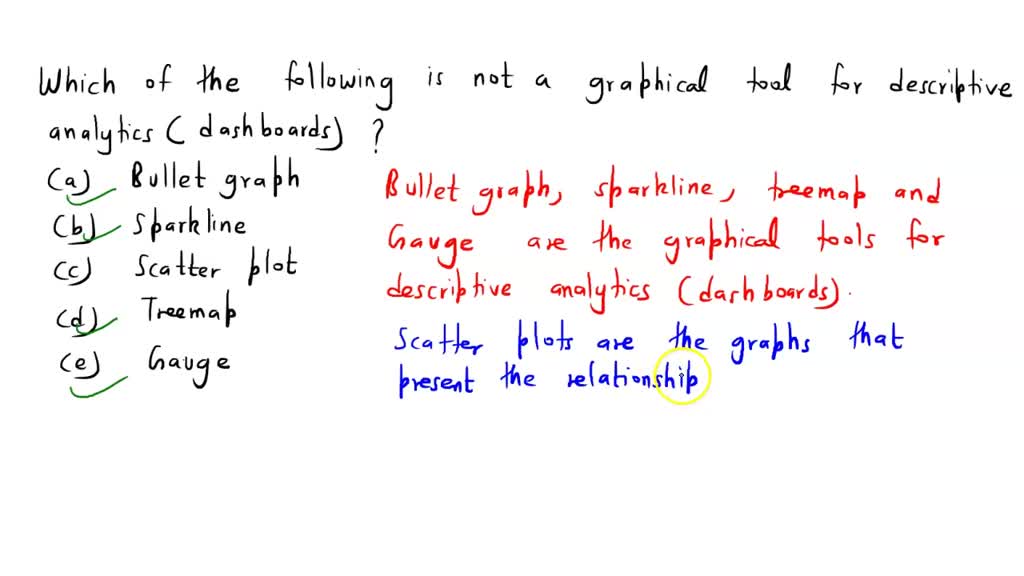 Which of the following is not a graphical tool for descriptive
analytics (dashboards) ?
(a) Bullet graph
(b) Sparkline
(c) Scatter plot
(d) Treemap
(e) Gauge
Bullet graph, sparkline, treemap and
Gauge are the graphical tools for
descriptive analytics (dashboards).
Scatter plots are the graphs that
present the relationship